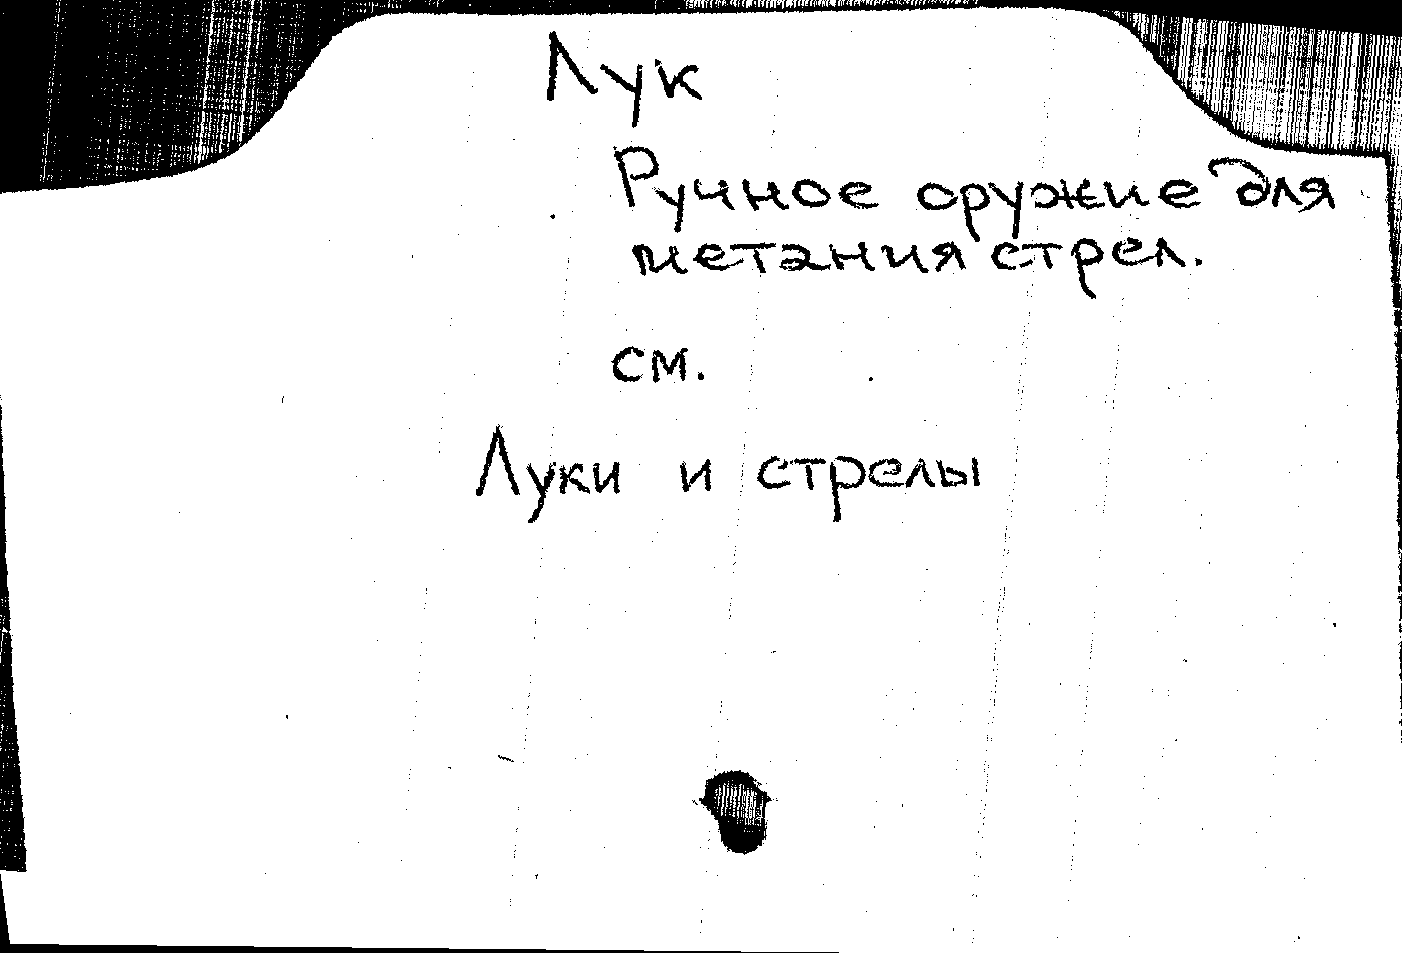 Лук
Ручное оружие для
метания стрел.
см.
Луки и стрелы